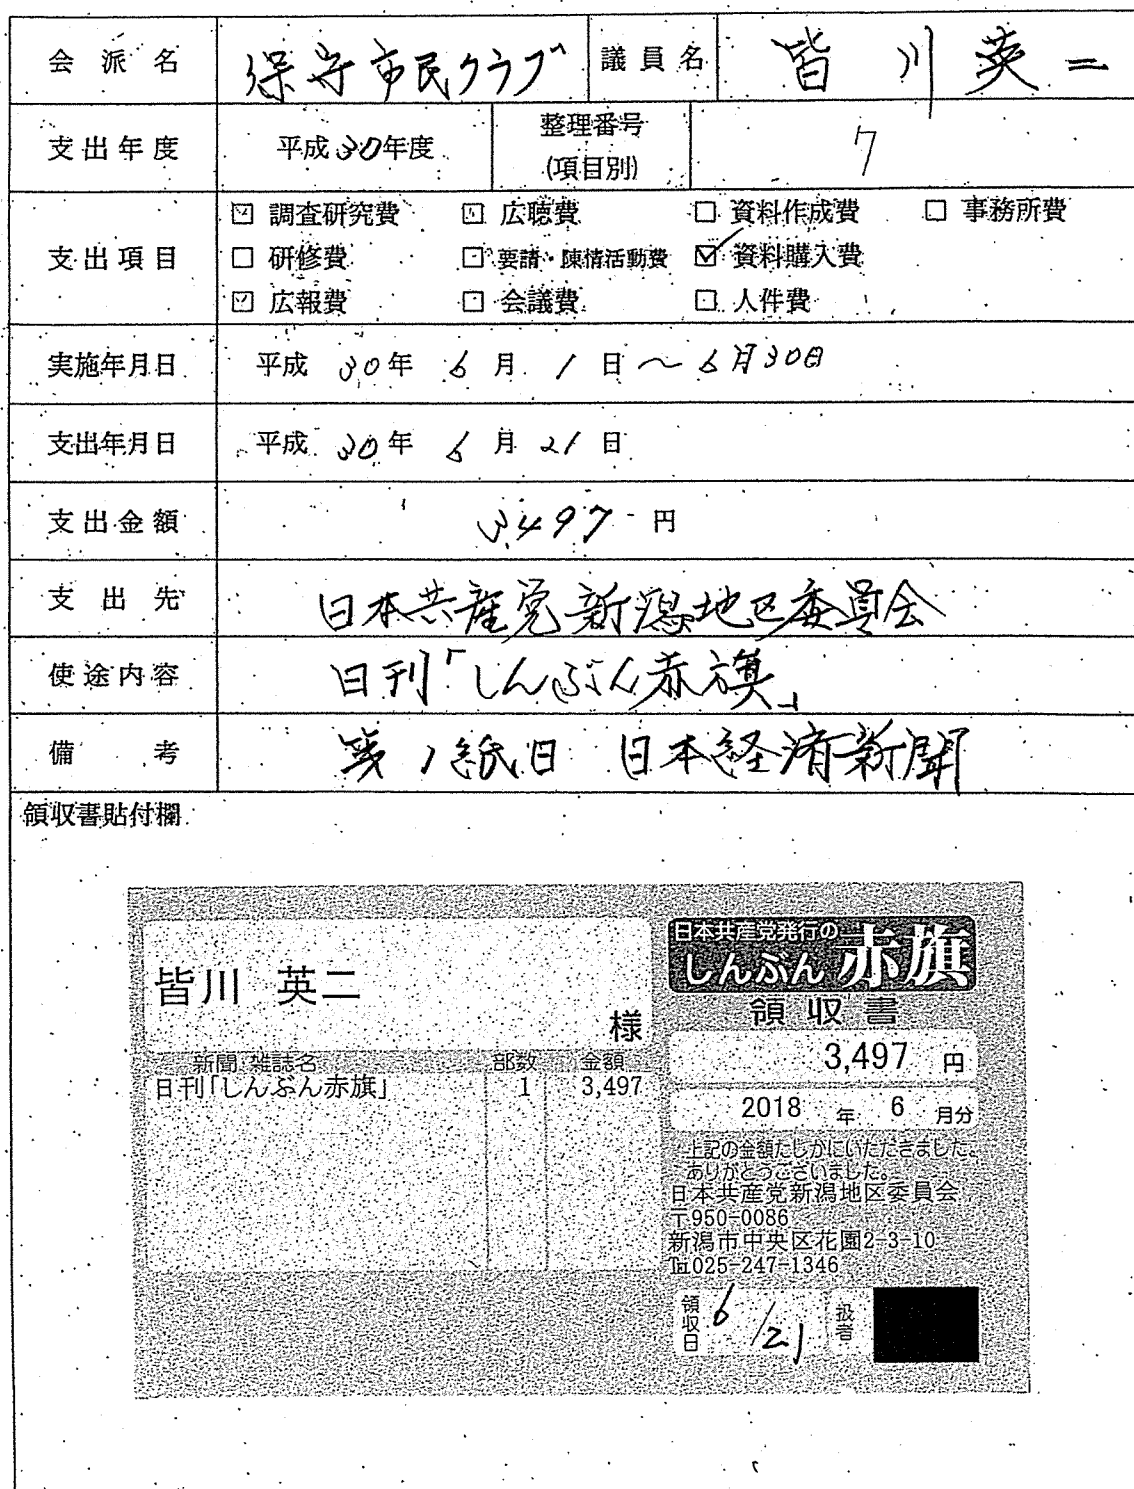 会派名 保守市民クラブ 議員名 皆川英二
支出年度 平成30年度 整理番号(項目別) 7
支出項目
☐ 調査研究費 ☐ 広聴費 ☐ 資料作成費 ☐ 事務所費
☐ 研修費 ☐ 要請・陳情活動費 ☑ 資料購入費
☐ 広報費 ☐ 会議費 ☐ 人件費
実施年月日 平成 30年 6月 1日 ~ 6月30日
支出年月日 平成 30年 6月 21日
支出金額 3,497 円
支出先 日本共産党新潟地区委員会
使途内容 日刊「しんぶん赤旗」
備考 第1紙目 日本経済新聞
領収書貼付欄
皆川 英二
様
新聞 雑誌名 部数 金額
日刊「しんぶん赤旗」 1 3,497
日本共産党発行の
しんぶん赤旗
領収書
3,497 円
2018 年 6 月分
上記の金額たしかにいただきました。
ありがとうございました。
日本共産党新潟地区委員会
〒950-0086
新潟市中央区花園2-3-10
℡025-247-1346
領収日 6/21 扱者